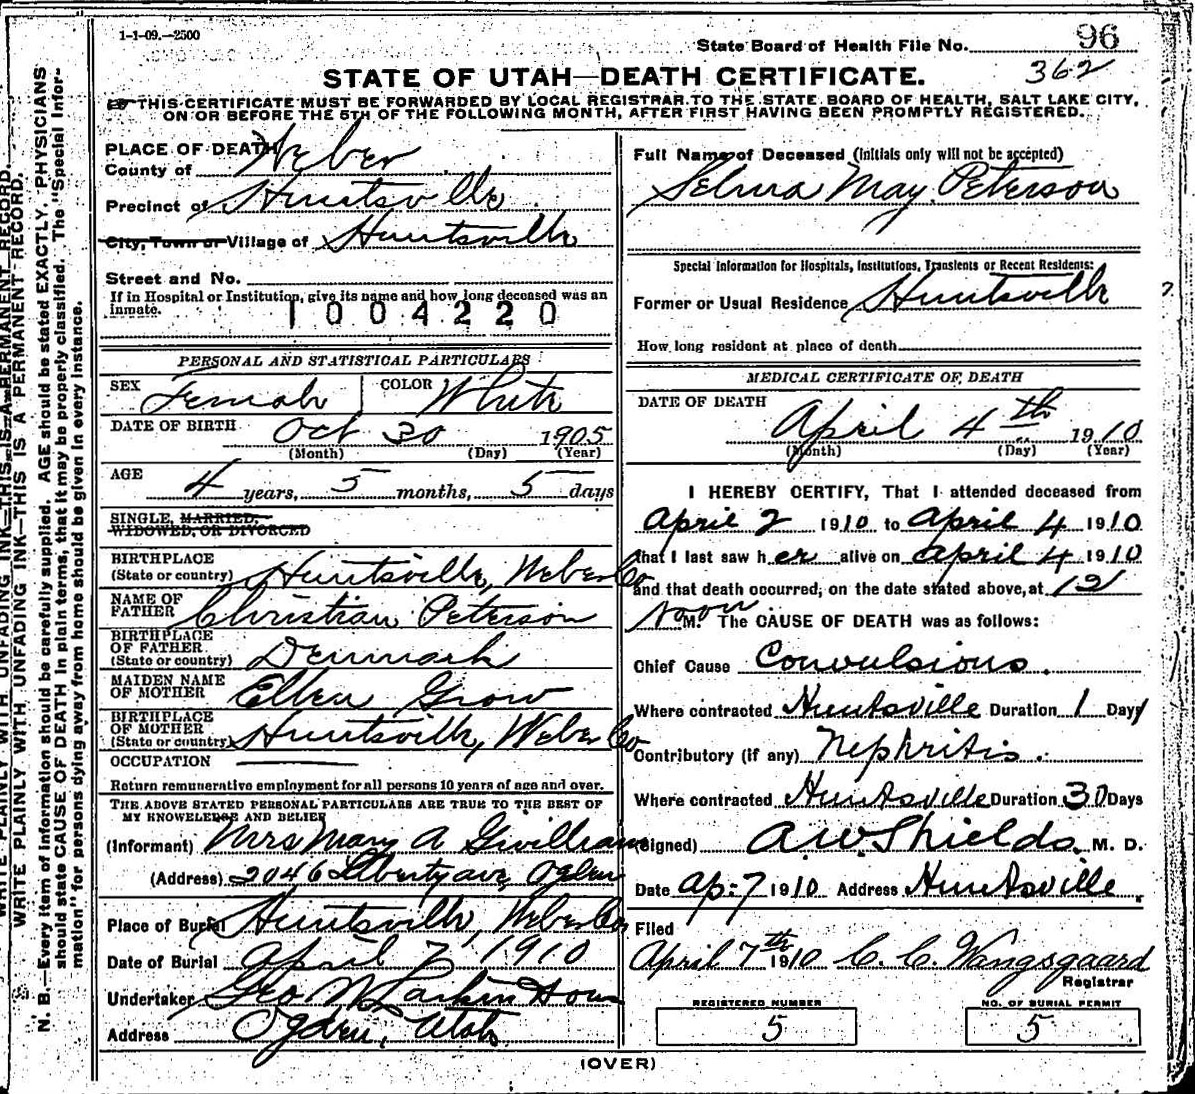 1-1-09.—2500
State Board of Health File No. 96
362
STATE OF UTAH—DEATH CERTIFICATE.
THIS CERTIFICATE MUST BE FORWARDED BY LOCAL REGISTRAR TO THE STATE BOARD OF HEALTH, SALT LAKE CITY,
ON OR BEFORE THE 5TH OF THE FOLLOWING MONTH, AFTER FIRST HAVING BEEN PROMPTLY REGISTERED.
PLACE OF DEATH
County of Weber
Precinct of Huntsville
City, Town or Village of Huntsville
Street and No.
If in Hospital or Institution, give its name and how long deceased was an
inmate.
1004220
PERSONAL AND STATISTICAL PARTICULARS
SEX Female COLOR White
DATE OF BIRTH Oct 30 1905
(Month) (Day) (Year)
AGE 4 years, 5 months, 5 days
SINGLE, MARRIED,
WIDOWED, OR DIVORCED
BIRTHPLACE
(State or country) Huntsville, Weber Co
NAME OF
FATHER Christian Peterson
BIRTHPLACE
OF FATHER
(State or country) Denmark
MAIDEN NAME
OF MOTHER Ellen Grow
BIRTHPLACE
OF MOTHER
(State or country) Huntsville, Weber Co
OCCUPATION
Return remunerative employment for all persons 10 years of age and over.
THE ABOVE STATED PERSONAL PARTICULARS ARE TRUE TO THE BEST OF
MY KNOWLEDGE AND BELIEF
(Informant) Mrs Mary A
(Address) 2046 Liberty ave, Ogden
Place of Burial Huntsville, Weber Co
Date of Burial April 7, 1910
Undertaker Geo W Larkin
Address Ogden, Utah
Full Name of Deceased (Initials only will not be accepted)
Selma May Peterson
Special Information for Hospitals, Institutions, Transients or Recent Residents:
Former or Usual Residence Huntsville
How long resident at place of death
MEDICAL CERTIFICATE OF DEATH
DATE OF DEATH
April 4th 1910
(Month) (Day) (Year)
I HEREBY CERTIFY, That I attended deceased from
April 2 1910 to April 4 1910
that I last saw her alive on April 4 1910
and that death occurred, on the date stated above, at 12
Noon M. The CAUSE OF DEATH was as follows:
Chief Cause Convulsions.
Where contracted Huntsville Duration 1 Days
Contributory (if any) Nephritis.
Where contracted Huntsville Duration 30 Days
(Signed) A.W. Shields M. D.
Date Ap-7 1910 Address Huntsville.
Filed
April 7th 1910 C. C. Wangsgaard
Registrar
REGISTERED NUMBER
5
NO. OF BURIAL PERMIT
5
(OVER)
WRITE PLAINLY WITH UNFADING INK—THIS IS A PERMANENT RECORD.
WRITE PLAINLY WITH UNFADING INK—THIS IS A PERMANENT RECORD.
N. B.—Every item of information should be carefully supplied. AGE should be stated EXACTLY. PHYSICIANS
should state CAUSE OF DEATH in plain terms, that it may be properly classified. The "Special Infor-
mation" for persons dying away from home should be given in every instance.